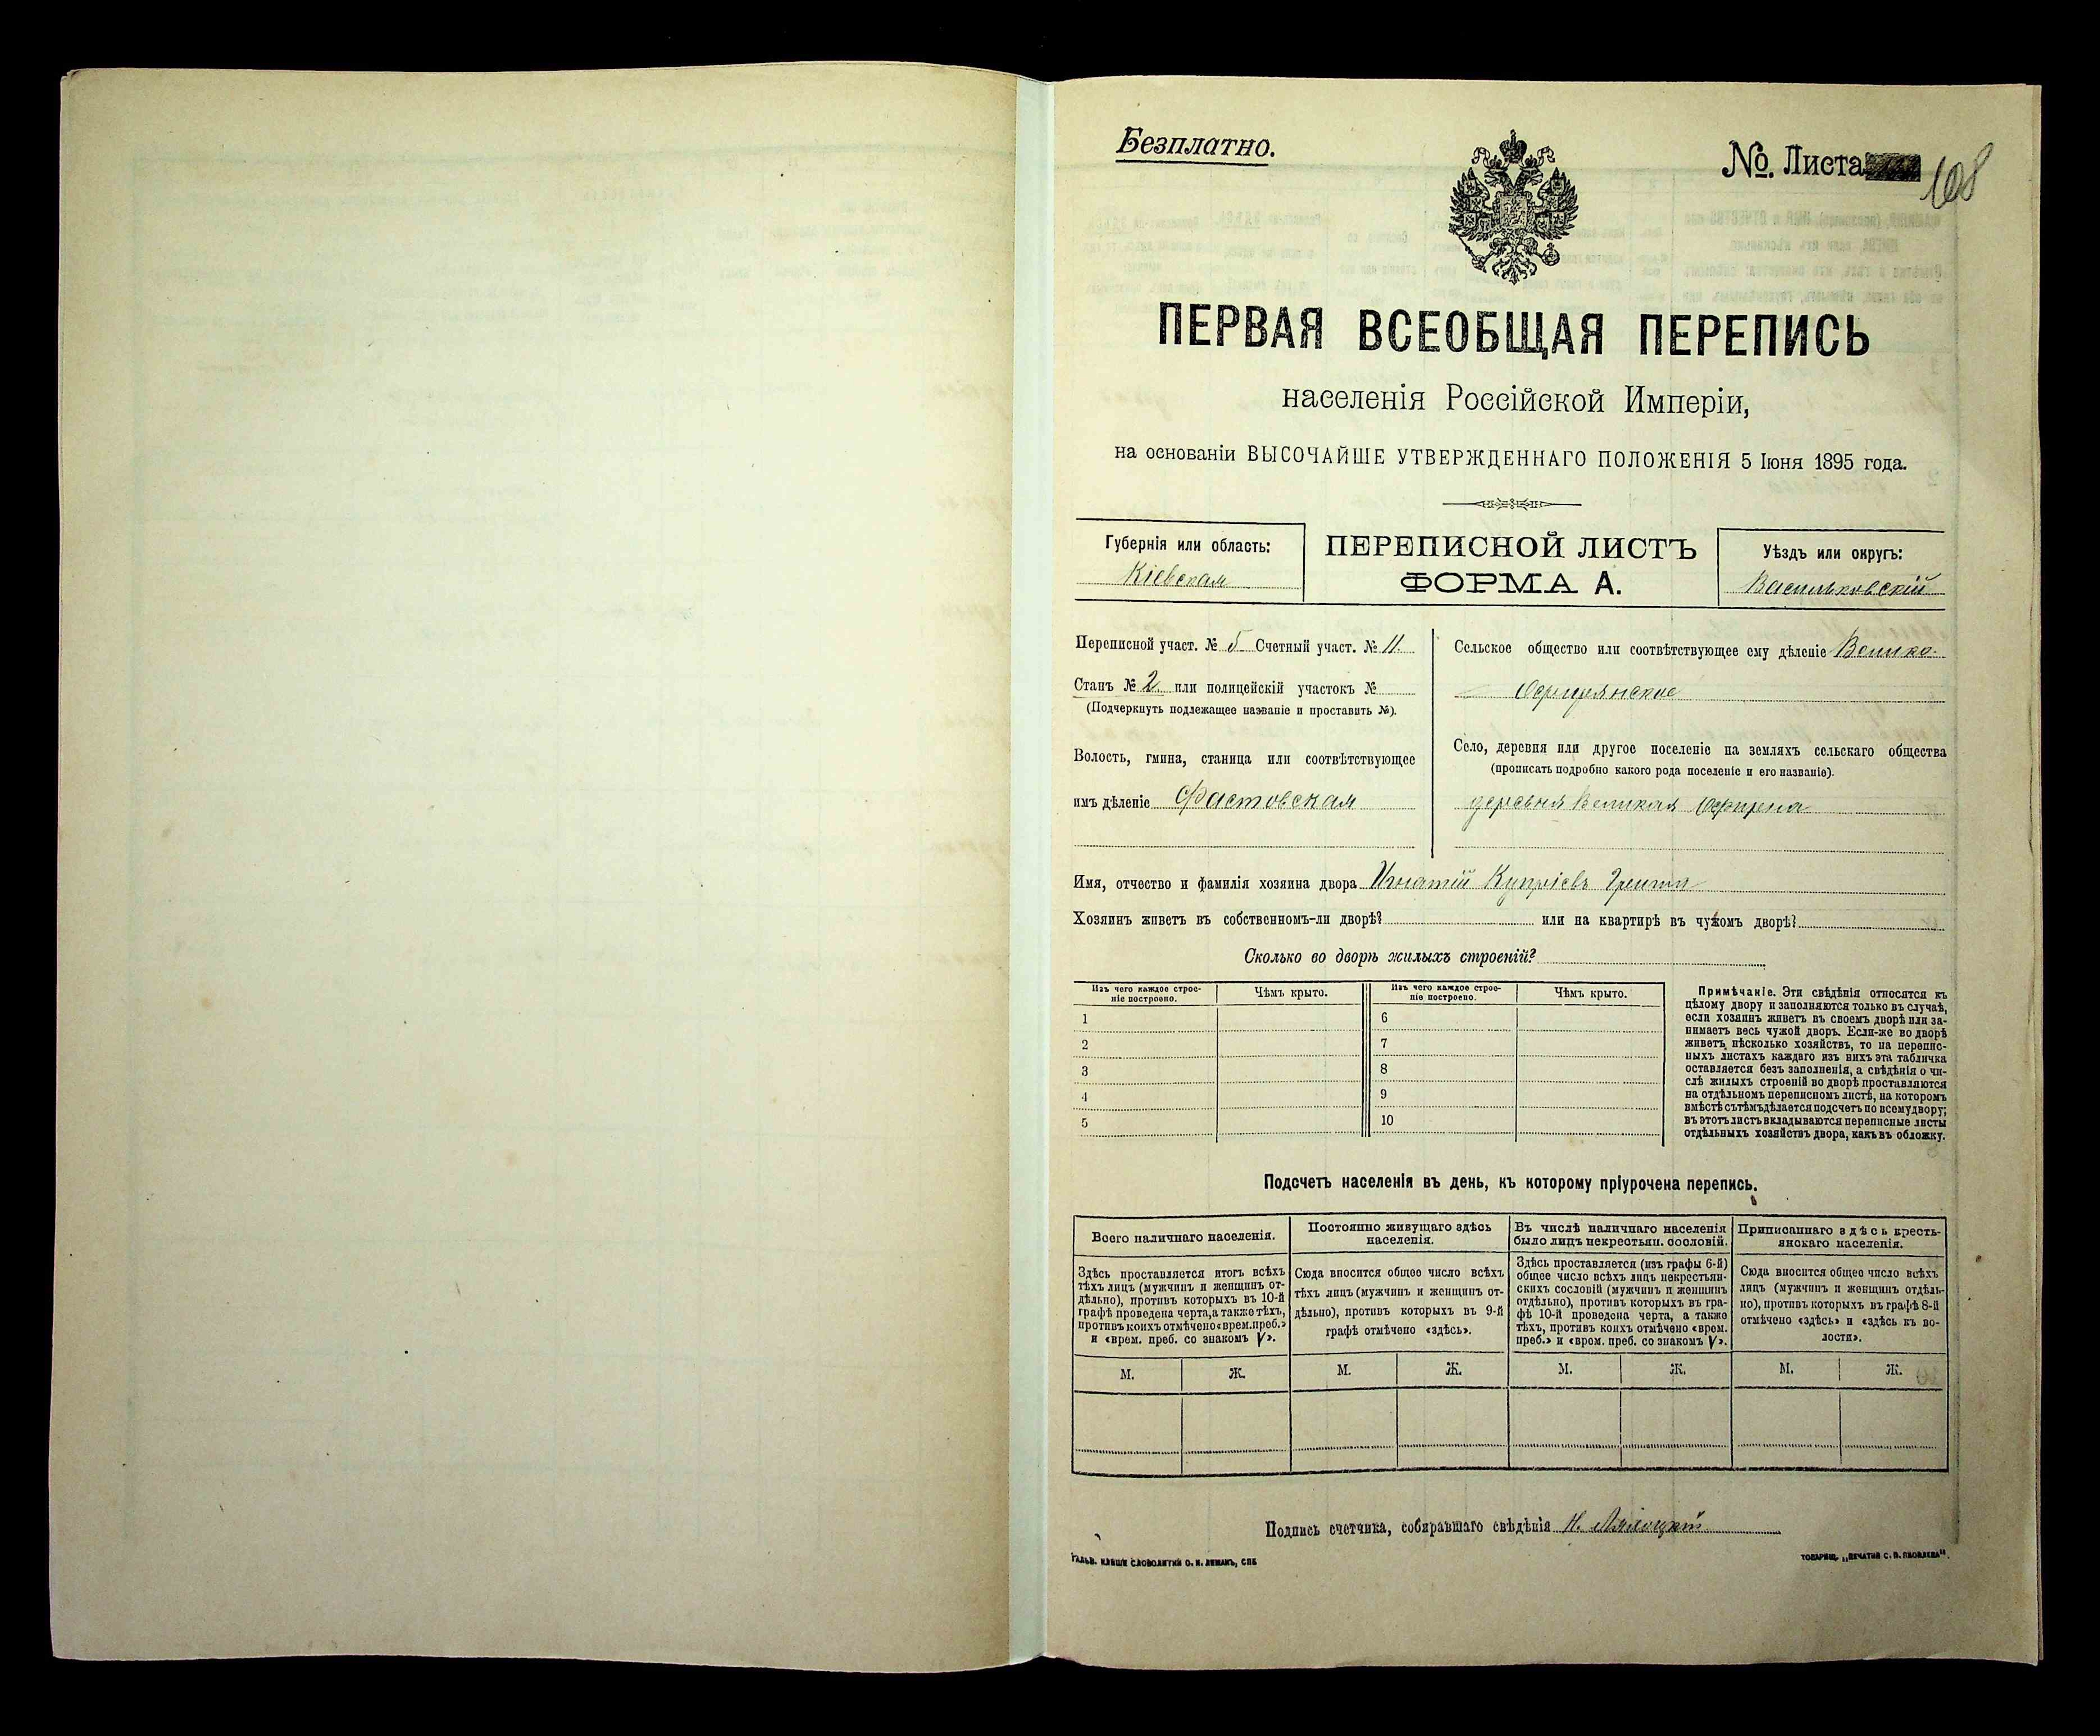 Безплатно.
№. Листа 108
ПЕРВАЯ ВСЕОБЩАЯ ПЕРЕПИСЬ
населенія Россійской Имперіи,
на основаніи ВЫСОЧАЙШЕ УТВЕРЖДЕННАГО ПОЛОЖЕНІЯ 5 Іюня 1895 года.
Губернія или область:
Кіевская
ПЕРЕПИСНОЙ ЛИСТЪ
ФОРМА А.
Уѣздъ или округъ:
Васильковскій
Переписной участ. № 5 Счетный участ. № 11.
Станъ № 2 или полицейскій участокъ №
(Подчеркнуть подлежащее названіе и проставить №).
Волость, гмина, станица или соотвѣтствующее
имъ дѣленіе Фастовская
Сельское общество или соотвѣтствующее ему дѣленіе Велико-
Офирнянское
Село, деревня или другое поселеніе на земляхъ сельскаго общества
(прописать подробно какого рода поселеніе и его названіе).
деревня Великая Офирна
Имя, отчество и фамилія хозяина двора Игнатій Купріевъ
Хозяинъ живетъ въ собственномъ-ли дворѣ? или на квартирѣ въ чужомъ дворѣ?
Сколько во дворѣ жилыхъ строеній?
Изъ чего каждое строе-
ніе построено.
Чѣмъ крыто.
Изъ чего каждое строе-
ніе построено.
Чѣмъ крыто.
1 6
2 7
3 8
4 9
5 10
Примѣчаніе. Эти свѣдѣнія относятся къ
цѣлому двору и заполняются только въ случаѣ,
если хозяинъ живетъ въ своемъ дворѣ или за-
нимаетъ весь чужой дворъ. Если-же во дворѣ
живетъ нѣсколько хозяйствъ, то на перепис-
ныхъ листахъ каждаго изъ нихъ эта табличка
оставляется безъ заполненія, а свѣдѣнія о чи-
слѣ жилыхъ строеній во дворѣ проставляются
на отдѣльномъ переписномъ листѣ, на которомъ
вмѣстѣ съ тѣмъ дѣлается подсчетъ по всему двору;
въ этотъ листъ вкладываются переписные листы
отдѣльныхъ хозяйствъ двора, какъ въ обложку.
Подсчетъ населенія въ день, къ которому пріурочена перепись.
Всего наличнаго населенія.
Здѣсь проставляется итогъ всѣхъ
тѣхъ лицъ (мужчинъ и женщинъ от-
дѣльно), противъ которыхъ въ 10-й
графѣ проведена черта, а также тѣхъ,
противъ коихъ отмѣчено «врем. преб.»
и «врем. преб. со знакомъ V».
Постоянно живущаго здѣсь
населенія.
Сюда вносится общее число всѣхъ
тѣхъ лицъ (мужчинъ и женщинъ от-
дѣльно), противъ которыхъ въ 9-й
графѣ отмѣчено «здѣсь».
Въ числѣ наличнаго населенія
было лицъ некрестьян. сословій.
Здѣсь проставляется (изъ графы 6-й)
общее число всѣхъ лицъ некрестьян-
скихъ сословій (мужчинъ и женщинъ
отдѣльно), противъ которыхъ въ гра-
фѣ 10-й проведена черта, а также
тѣхъ, противъ коихъ отмѣчено «врем.
преб.» и «врем. преб. со знакомъ V».
Приписаннаго здѣсь кресть-
янскаго населенія.
Сюда вносится общее число всѣхъ
лицъ (мужчинъ и женщинъ отдѣль-
но), противъ которыхъ въ графѣ 8-й
отмѣчено «здѣсь» и «здѣсь къ во-
лости».
М. Ж. М. Ж. М. Ж. М. Ж.
Подпись счетчика, собиравшаго свѣдѣнія Н.
ГАЛЬВ. КЛИШЕ СЛОВОЛИТНИ О. И. ЛЕМАНЪ, СПБ
ТОВАРИЩ. „ПЕЧАТНЯ С. П. ЯКОВЛЕВА“.